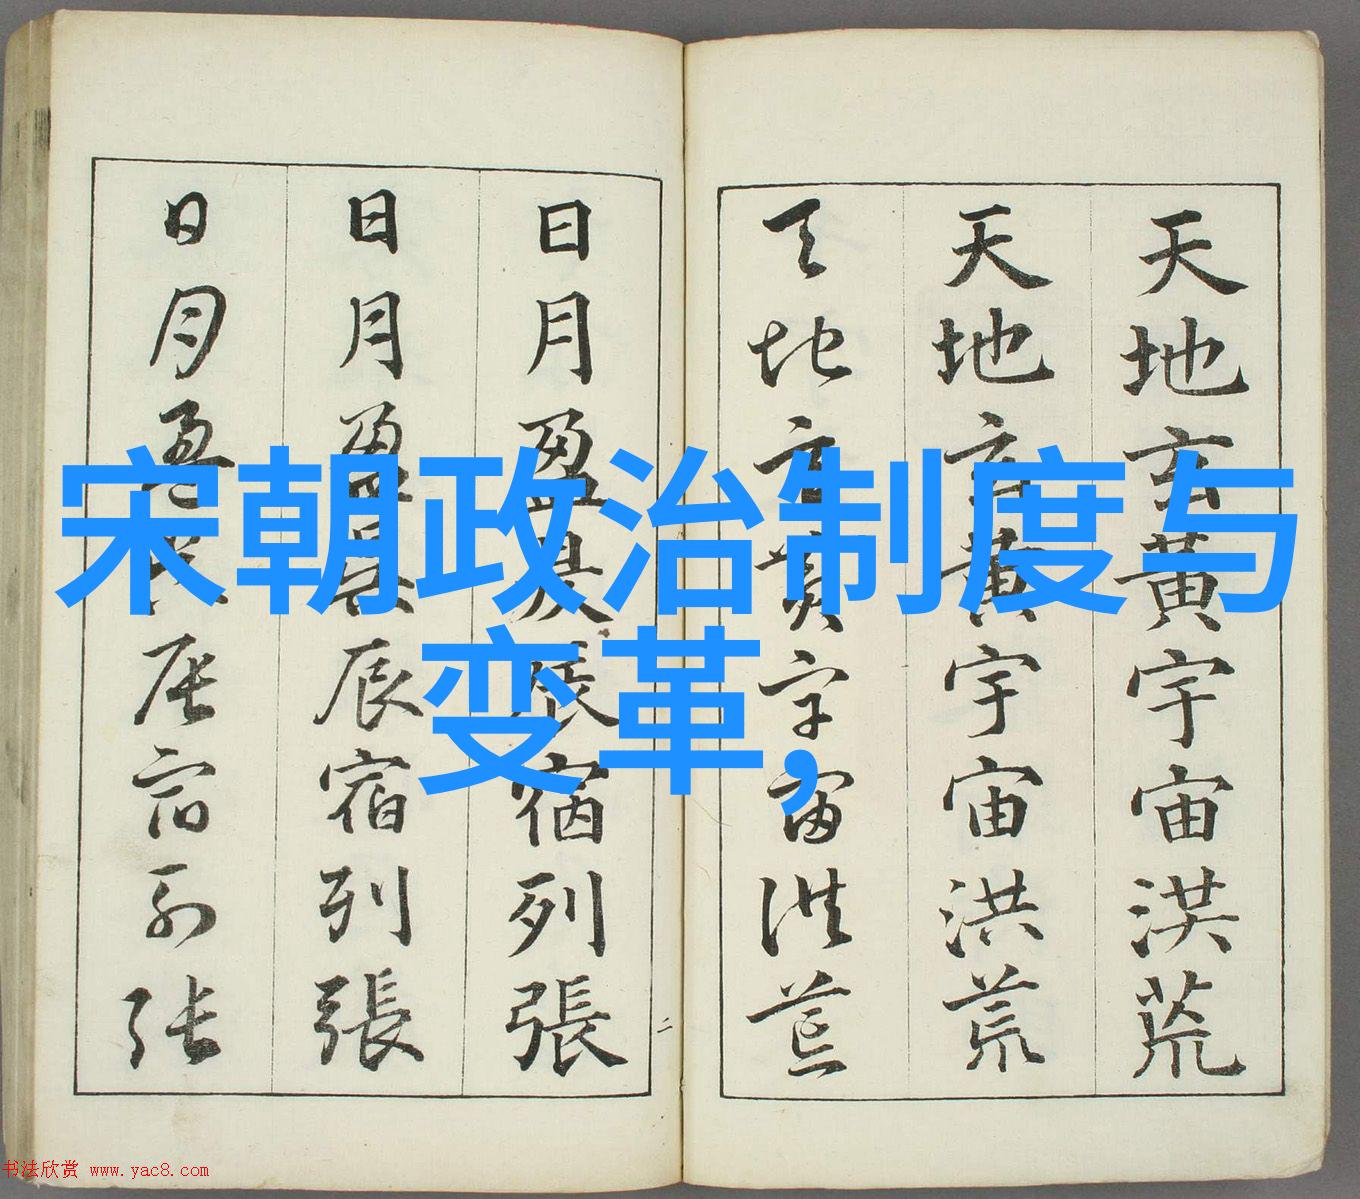 天地玄黄宇宙洪荒
天地玄黄宇宙洪荒
天地玄黄宇宙洪荒
日月盈昃辰宿列張
日月盈昃辰宿列張
日月盈昃辰宿列张
二
宋朝政治制度与
变革,
书法欣赏 www.yac8.com